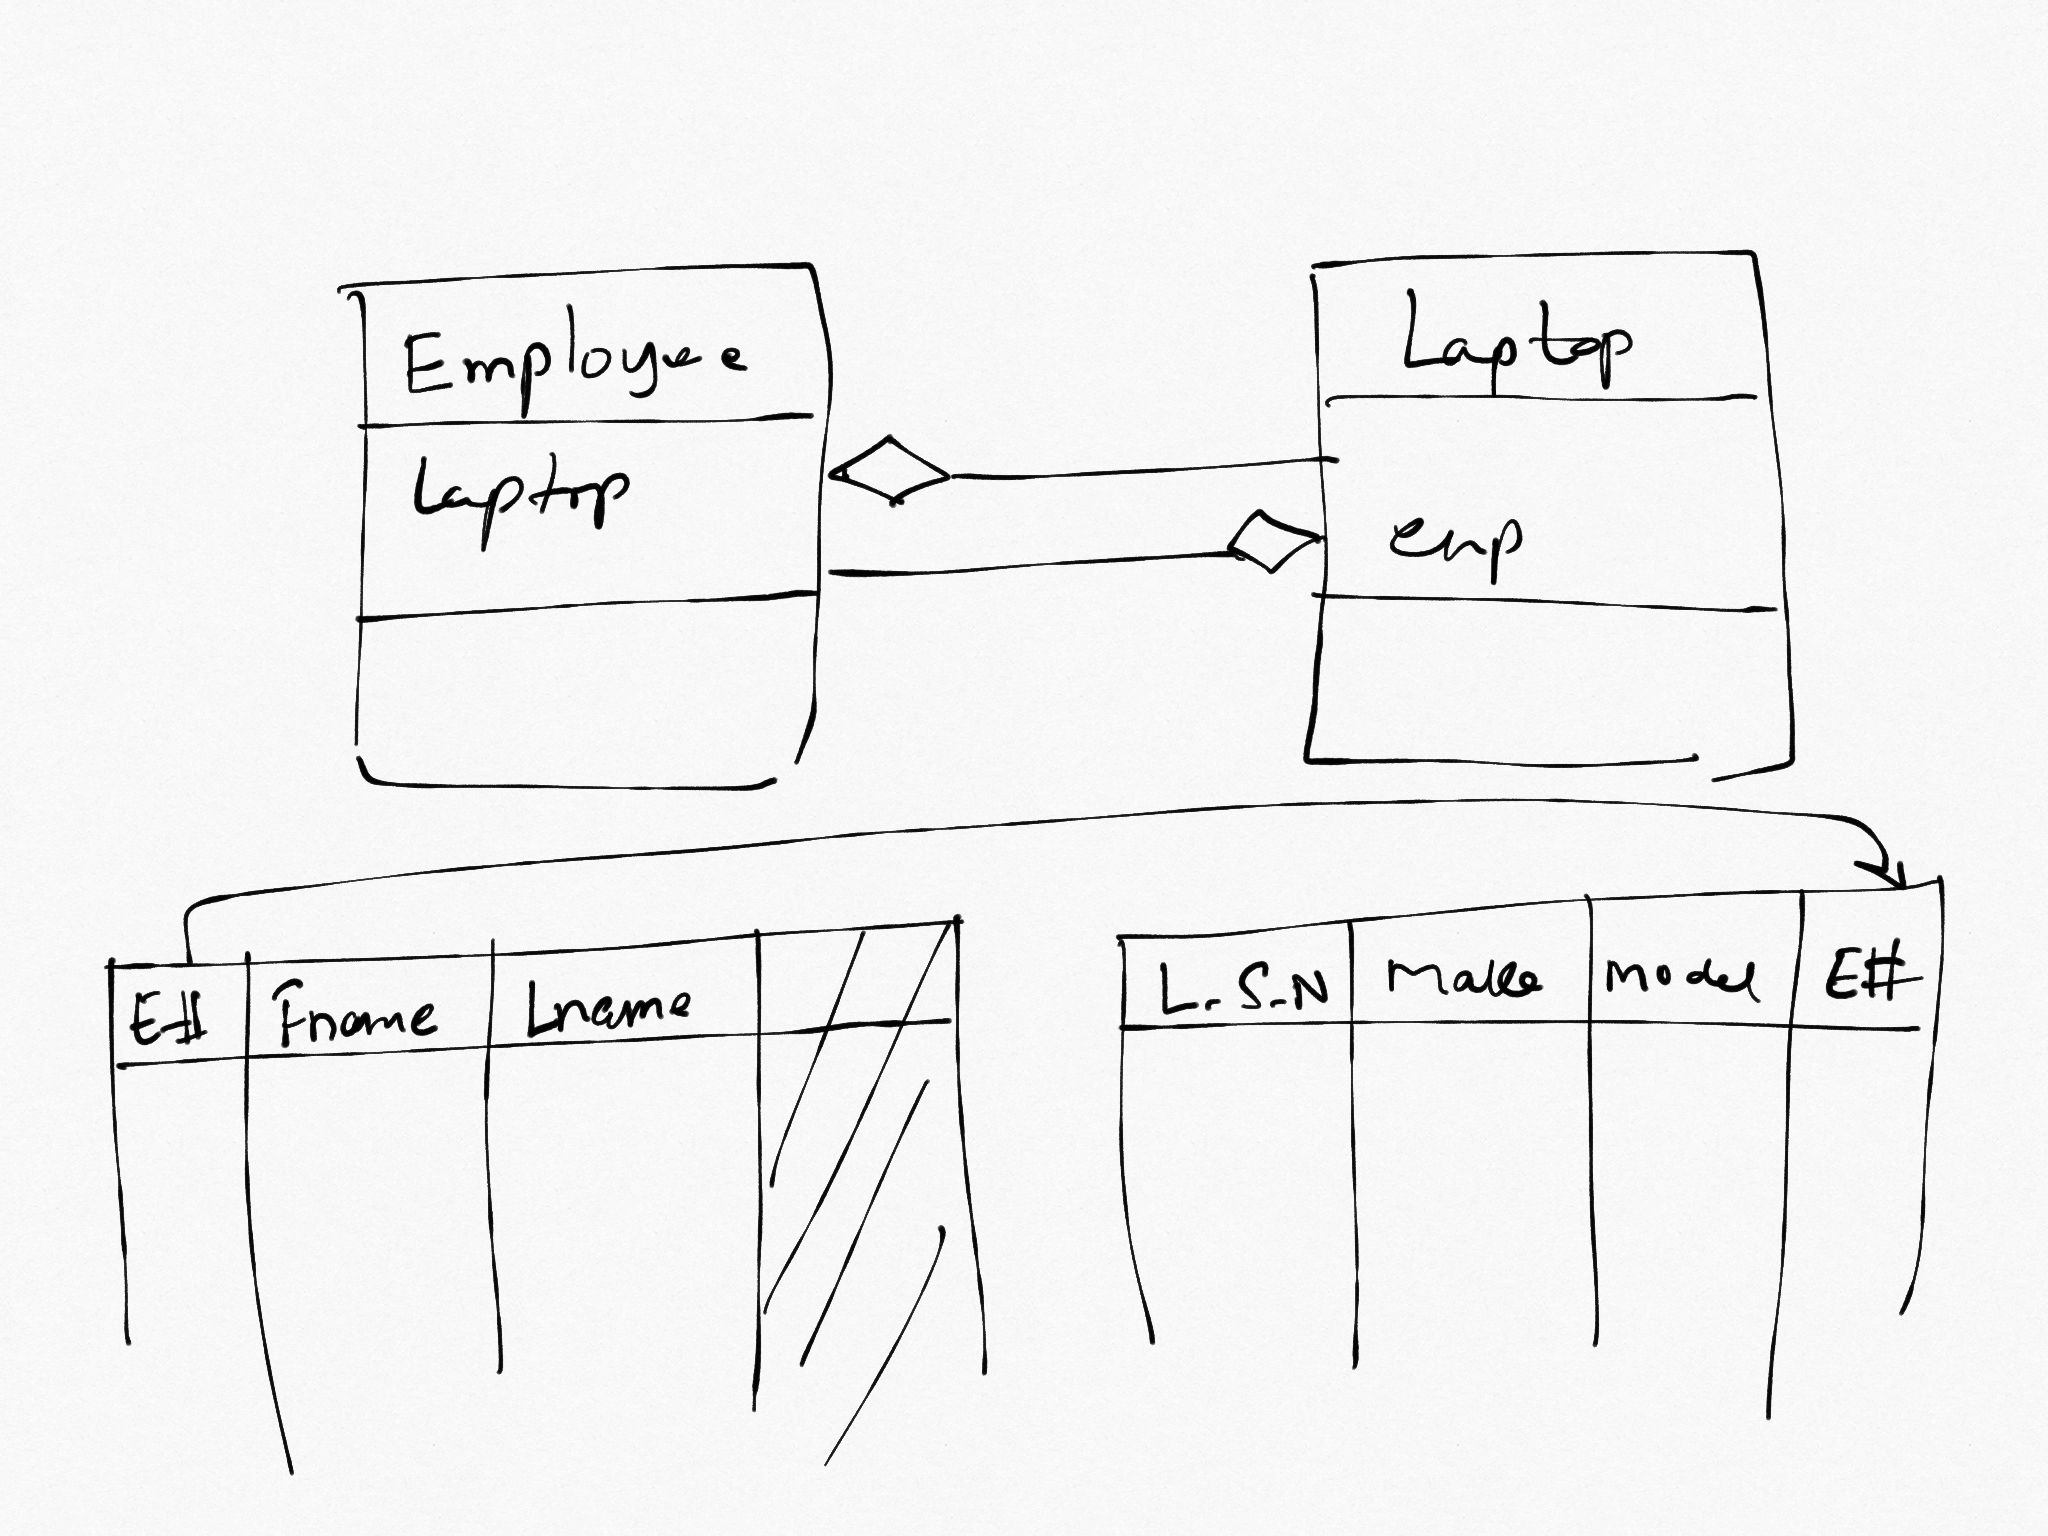 Employee
Laptop
Laptop
emp
E# Fname Lname
L.S.N Make Model E#